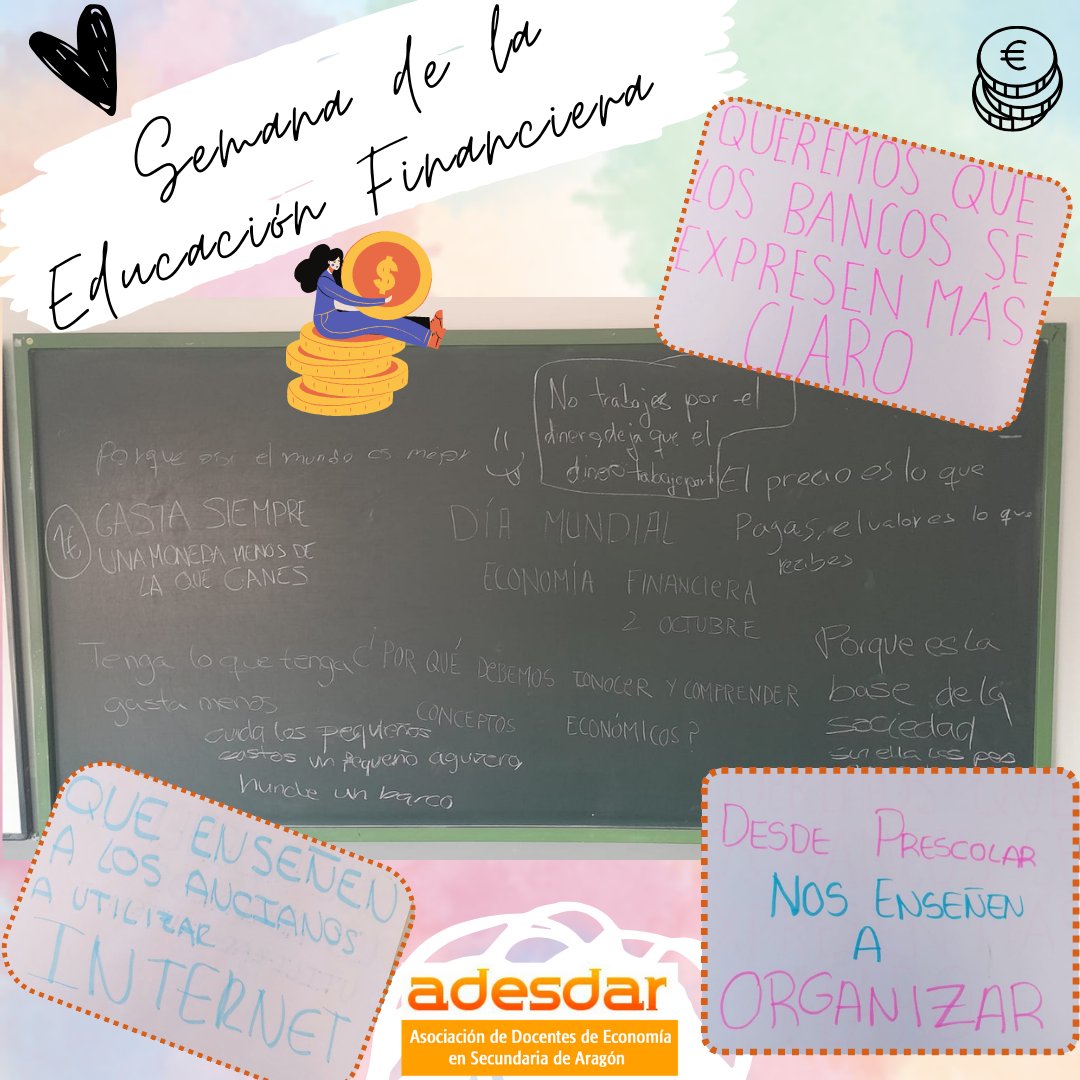 Semana de la
Educación Financiera
€
$
QUEREMOS QUE
LOS BANCOS SE
EXPRESEN MÁS
CLARO
No trabajes por el
dinero, deja que el
dinero trabaje por ti
Porque así el mundo es mejor
El precio es lo que
Pagas, el valor es lo que
recibes
1€
GASTA SIEMPRE
UNA MONEDA MENOS DE
LA QUE GANES
DÍA MUNDIAL
ECONOMÍA FINANCIERA
2 OCTUBRE
Tenga lo que tenga
gasta menos
¿POR QUÉ DEBEMOS CONOCER Y COMPRENDER
CONCEPTOS ECONÓMICOS?
Porque es la
base de la
sociedad
sin ella las
cuida los pequeños
costos un pequeño agujero
hunde un barco
QUE ENSEÑEN
A LOS ANCIANOS
A UTILIZAR
INTERNET
DESDE PRESCOLAR
NOS ENSEÑEN
A
ORGANIZAR
adesdar
Asociación de Docentes de Economía
en Secundaria de Aragón